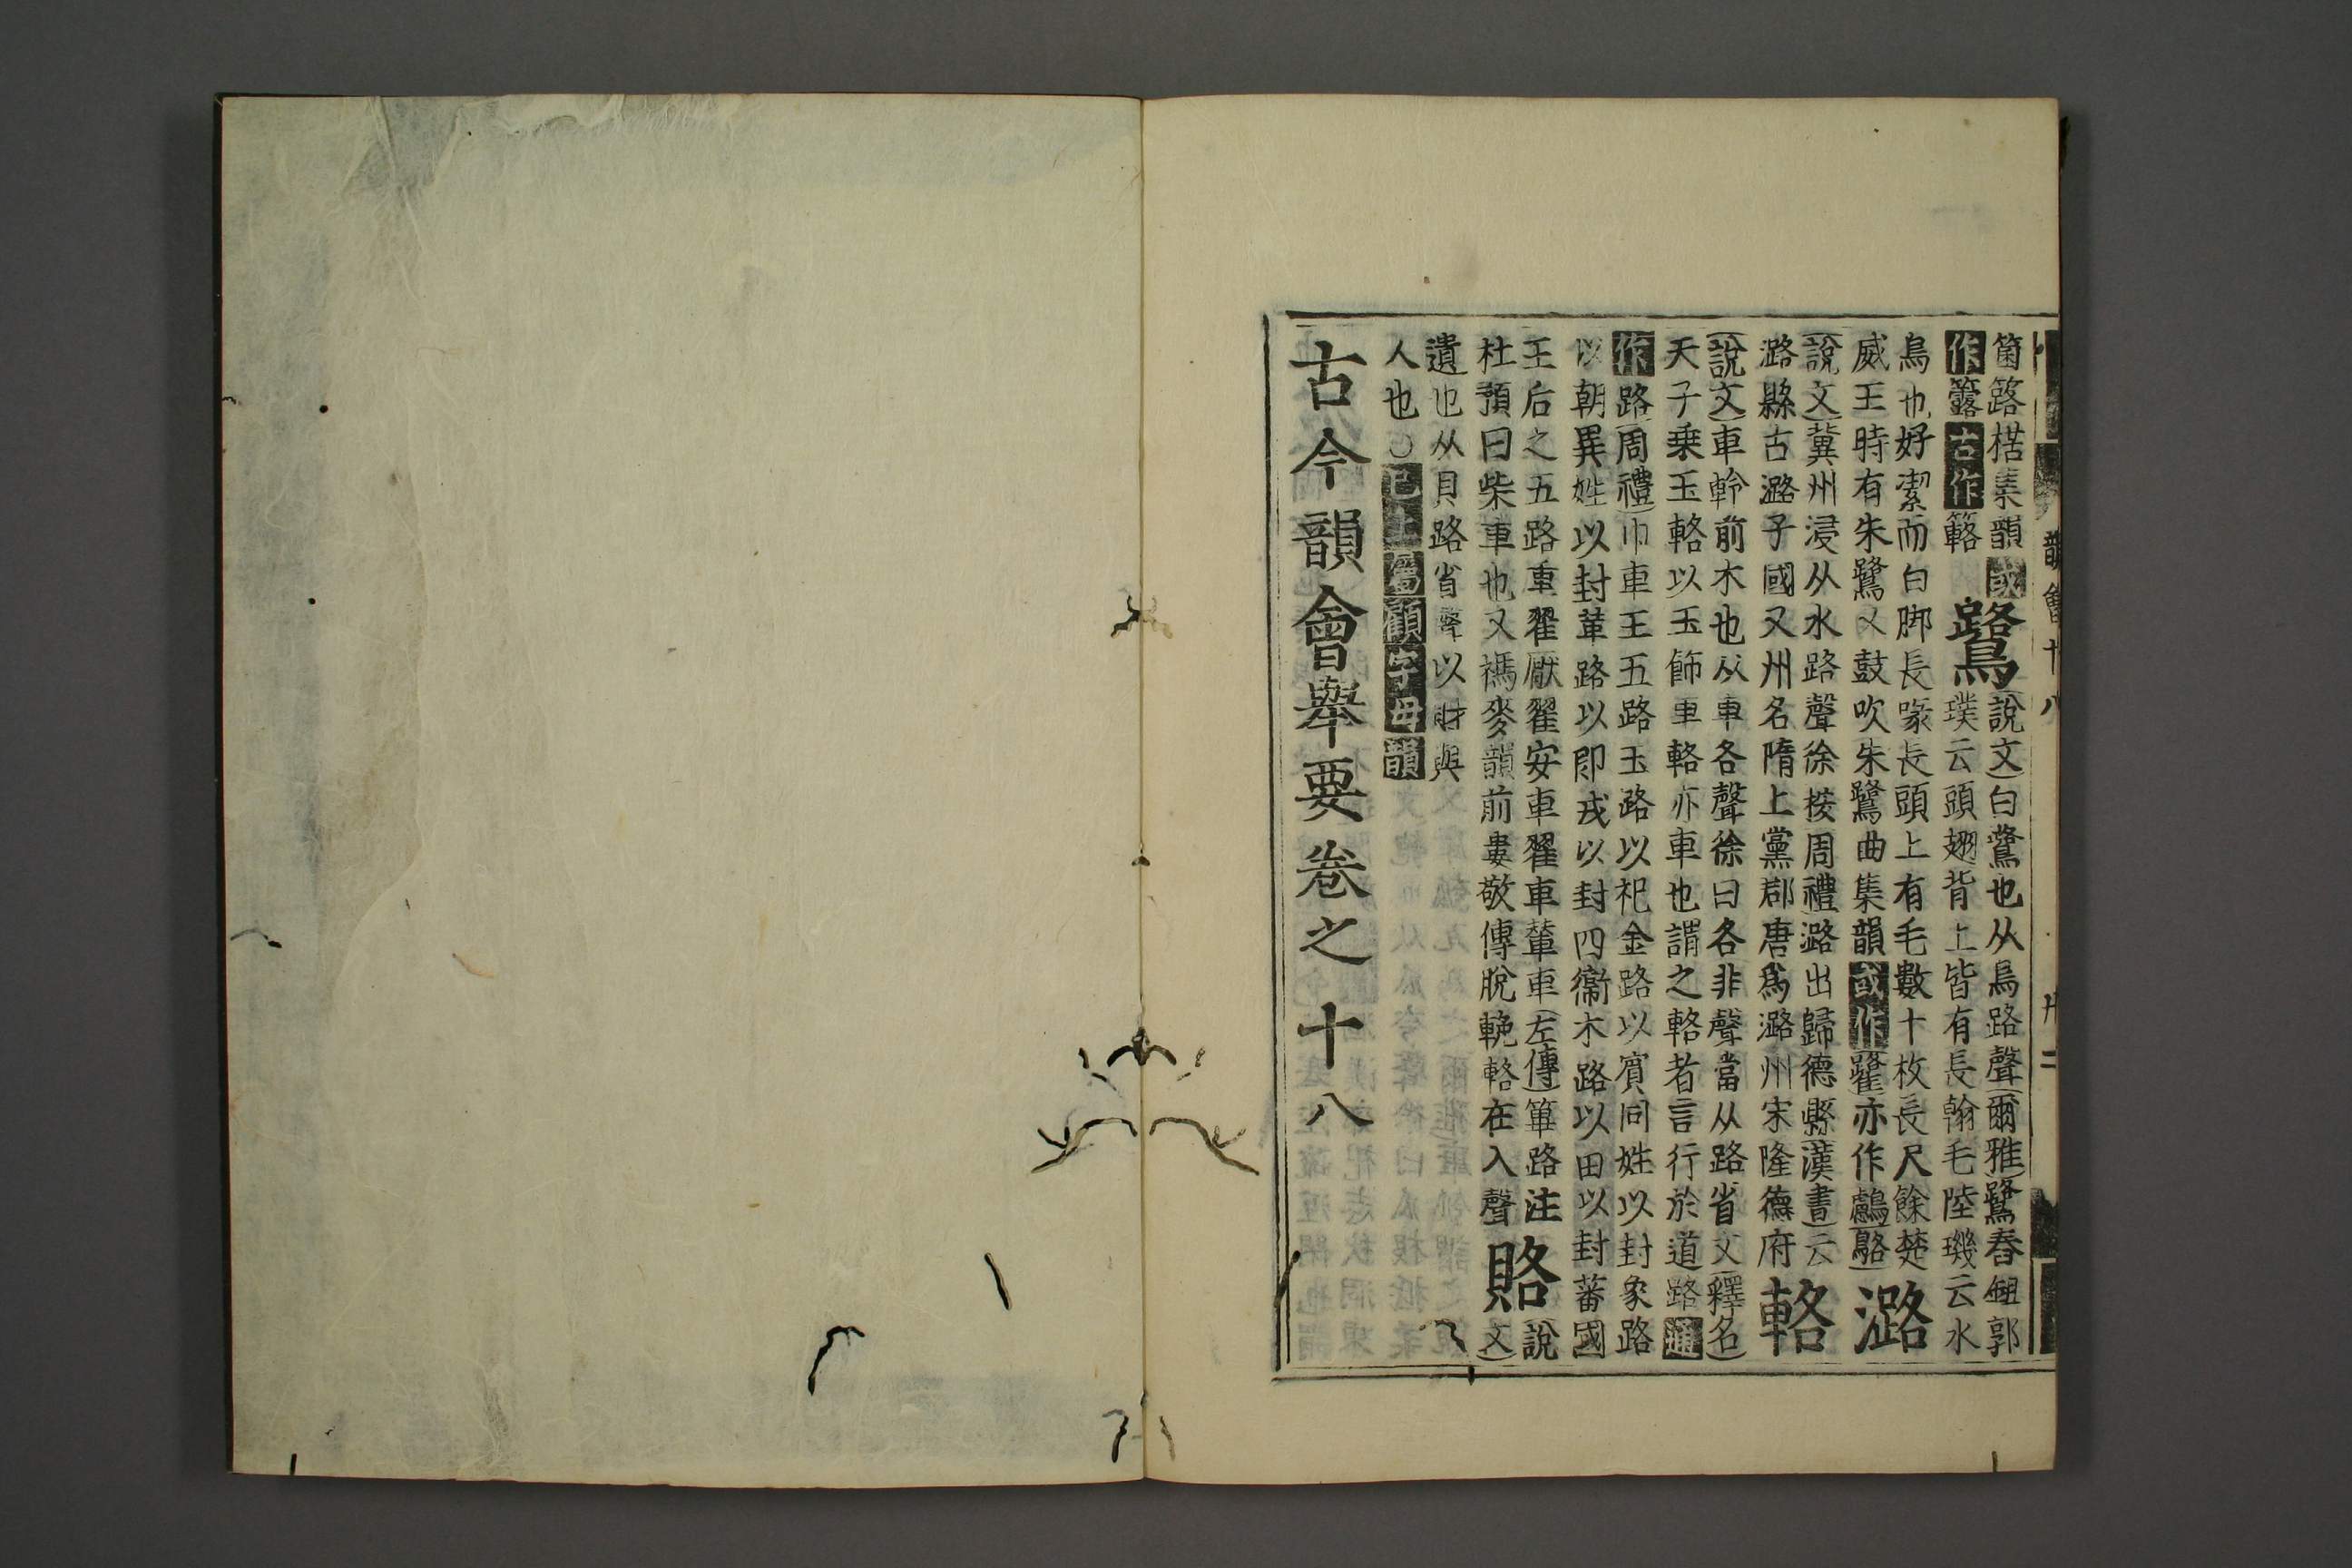 韻會十八
箘簬楛集韻或
作簵古作簬
鷺
說文白鷺也从鳥路聲爾雅鷺舂鉏郭
璞云頭翅背上皆有長翰毛陸璣云水
鳥也好潔而白脚長喙長頭上有毛數十枚長尺餘楚
威王時有朱鷺又鼓吹朱鷺曲集韻或作鸖亦作鸕鵅
潞
說文冀州浸从水路聲徐按周禮潞出歸德縣漢書云
潞縣古潞子國又州名隋上黨郡唐爲潞州宋隆德府
輅
說文車軨前木也从車各聲徐曰各非聲當从路省文釋名
天子乗玉輅以玉飾車輅亦車也謂之輅者言行於道路通
作路周禮巾車王五路玉路以祀金路以賓同姓以封象路
以朝異姓以封革路以即戎以封四衞木路以田以封蕃國
王后之五路重翟厭翟安車翟車輦車左傳篳路注
杜預曰柴車也又禡麥韻前婁敬傳脫輓輅在入聲
賂
說文
遺也从貝路省聲以財與
人也○已上屬顧字母韻
古今韻會舉要卷之十八